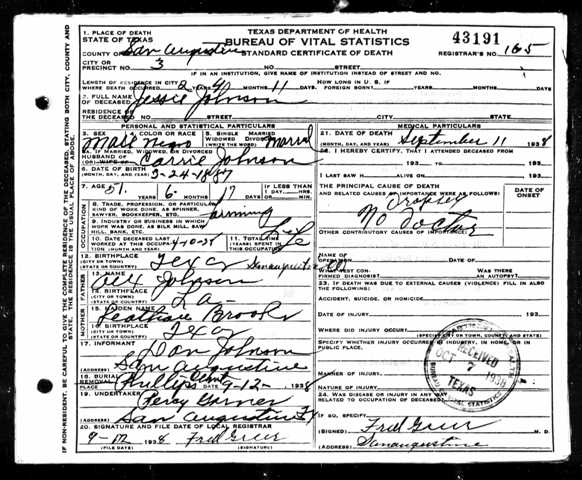 1. PLACE OF DEATH
STATE OF TEXAS
TEXAS DEPARTMENT OF HEALTH
BUREAU OF VITAL STATISTICS
STANDARD CERTIFICATE OF DEATH
43191
REGISTRAR'S NO. 165
COUNTY OF San Augustine
CITY OR
PRECINCT NO. 3
NO. STREET
IF IN AN INSTITUTION, GIVE NAME OF INSTITUTION INSTEAD OF STREET AND NO.
LENGTH OF RESIDENCE IN CITY
WHERE DEATH OCCURRED YEARS MONTHS 11 DAYS
HOW LONG IN U. S. IF
FOREIGN BORN? YEARS MONTHS DAYS
2. FULL NAME
OF DECEASED Jessie Johnson
RESIDENCE OF
THE DECEASED STREET AND NO. CITY STATE
PERSONAL AND STATISTICAL PARTICULARS
MEDICAL PARTICULARS
3. SEX Male
4. COLOR OR RACE Negro
5. SINGLE MARRIED
WIDOWED DIVORCED
(WRITE THE WORD) Married
5A. IF MARRIED, WIDOWED OR DIVORCED
HUSBAND OF
(OR) WIFE OF Carrie Johnson
6. DATE OF BIRTH
(MONTH, DAY, AND YEAR) 3-24-1887
7. AGE 51 6 17
IF LESS THAN
1 DAY
8. TRADE, PROFESSION, OR PARTICULAR
KIND OF WORK DONE, AS SPINNER,
SAWYER, BOOKKEEPER, ETC. farming
9. INDUSTRY OR BUSINESS IN WHICH
WORK WAS DONE, AS SILK MILL, SAW
MILL, BANK, ETC.
10. DATE DECEASED LAST
WORKED AT THIS OCCUPATION
(MONTH AND YEAR)
11. TOTAL TIME
(YEARS) SPENT IN
THIS OCCUPATION Life
12. BIRTHPLACE
(CITY OR TOWN)
(STATE OR COUNTRY) Texas
13. NAME Johnson
14. BIRTHPLACE
(CITY OR TOWN)
(STATE OR COUNTRY) La
15. MAIDEN NAME Brooks
16. BIRTHPLACE
(CITY OR TOWN)
(STATE OR COUNTRY) Texas
17. INFORMANT Dan Johnson
(ADDRESS) San Augustine
18. BURIAL
REMOVAL
PLACE Phillips 9-12-1938
19. UNDERTAKER Percy Garner
(ADDRESS) San Augustine Tx
20. SIGNATURE AND FILE DATE OF LOCAL REGISTRAR
9-12 1938 Fred Greer
(FILE DATE) (SIGNATURE)
21. DATE OF DEATH
(MONTH, DAY AND YEAR) September 11 1938
22. I HEREBY CERTIFY, THAT I ATTENDED DECEASED FROM
193 TO 193
I LAST SAW H ALIVE ON 193
THE PRINCIPAL CAUSE OF DEATH
AND RELATED CAUSES OF IMPORTANCE WERE AS FOLLOWS:
DATE OF
ONSET
Dropsy
No Doctor
OTHER CONTRIBUTORY CAUSES OF IMPORTANCE:
WAS THERE
AN AUTOPSY
23. IF DEATH WAS DUE TO EXTERNAL CAUSES (VIOLENCE) FILL IN ALSO
THE FOLLOWING:
ACCIDENT, SUICIDE, OR HOMICIDE
DATE OF INJURY 193
WHERE DID INJURY OCCUR
(SPECIFY CITY OR TOWN, COUNTY AND STATE)
SPECIFY WHETHER INJURY OCCURRED IN INDUSTRY, IN HOME, OR IN
PUBLIC PLACE.
MANNER OF INJURY
NATURE OF INJURY
24. WAS DISEASE OR INJURY IN ANY WAY
RELATED TO OCCUPATION OF DECEASED
IF SO, SPECIFY
(SIGNED) Fred Greer M. D.
(ADDRESS) Sanaugustine
RECEIVED
OCT 7 1938
TEXAS
BUREAU OF VITAL STATISTICS